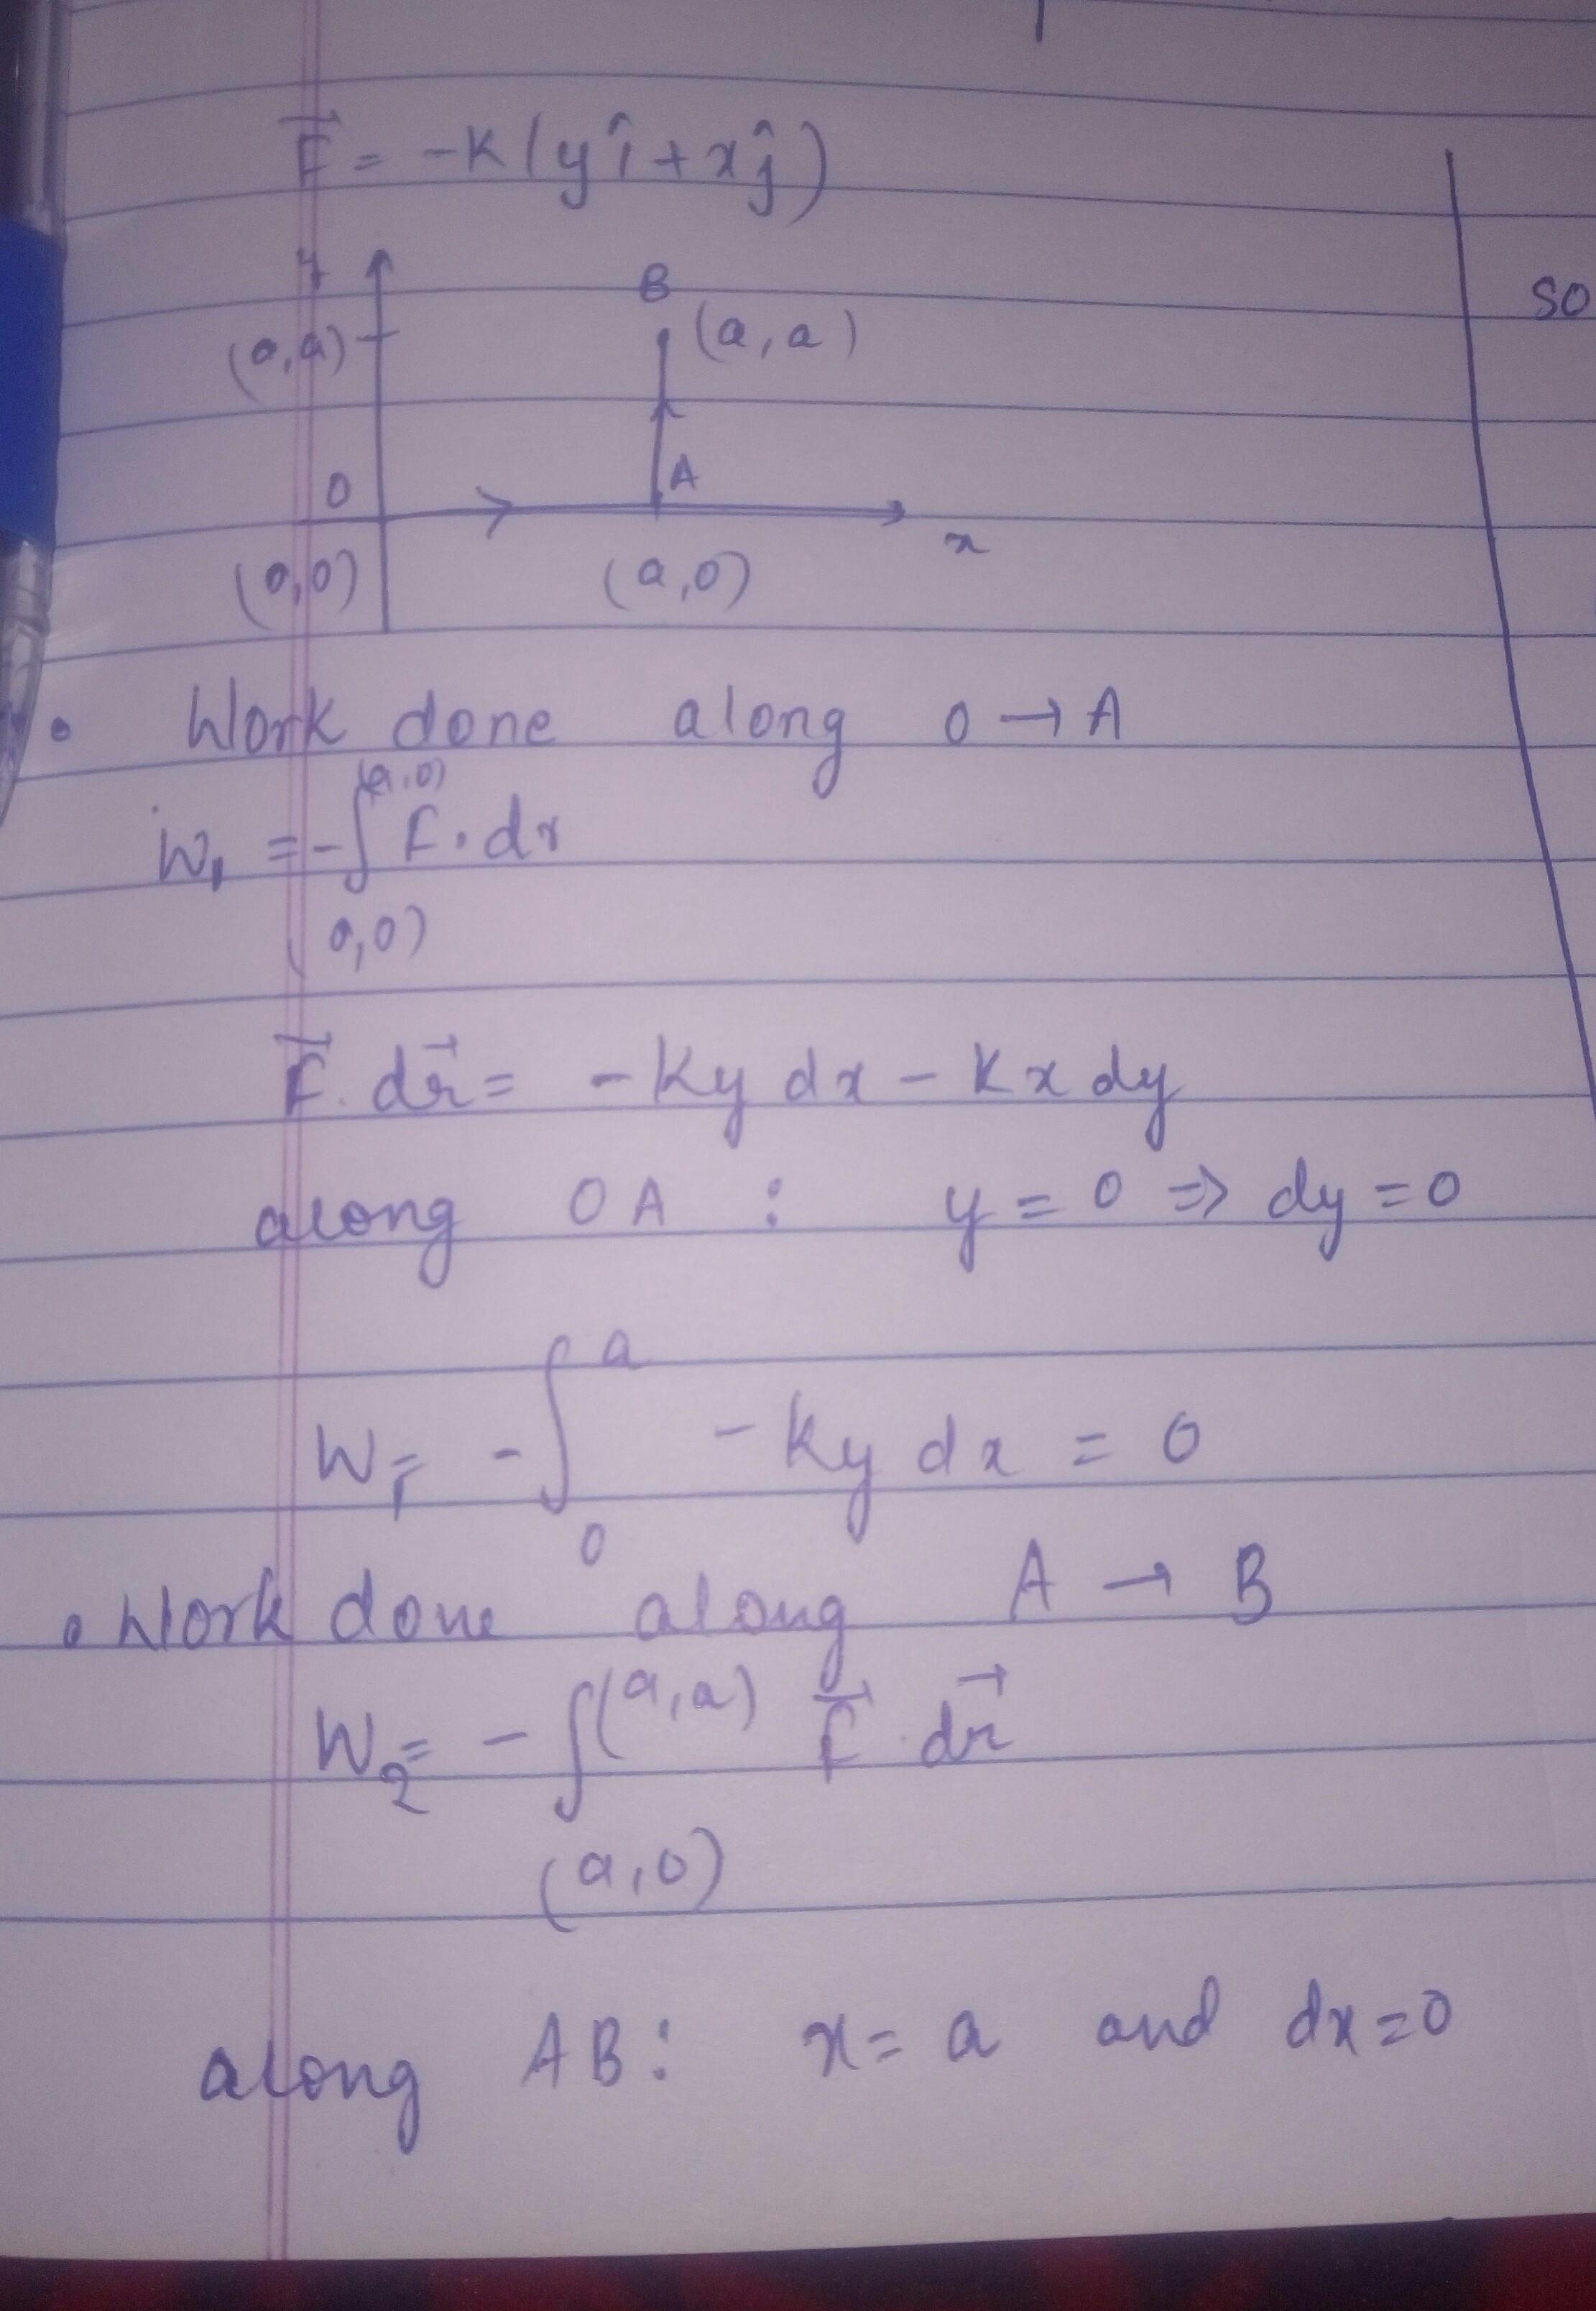 F⃗ = -K(yî + xĵ)
y
B
(a,a)
(0,a)
A
O
x
(0,0)
(a,0)
so
• Work done along O → A
W₁ = -∫ F.dr
(a,0)
(0,0)
F⃗.dr⃗ = -Ky dx - Kx dy
along OA : y = 0 ⇒ dy = 0
W₁ = -∫₀ᵃ -Ky dx = 0
• Work done along A → B
W₂ = -∫ F⃗.dr⃗
(a,a)
(a,0)
along AB: x = a and dx = 0